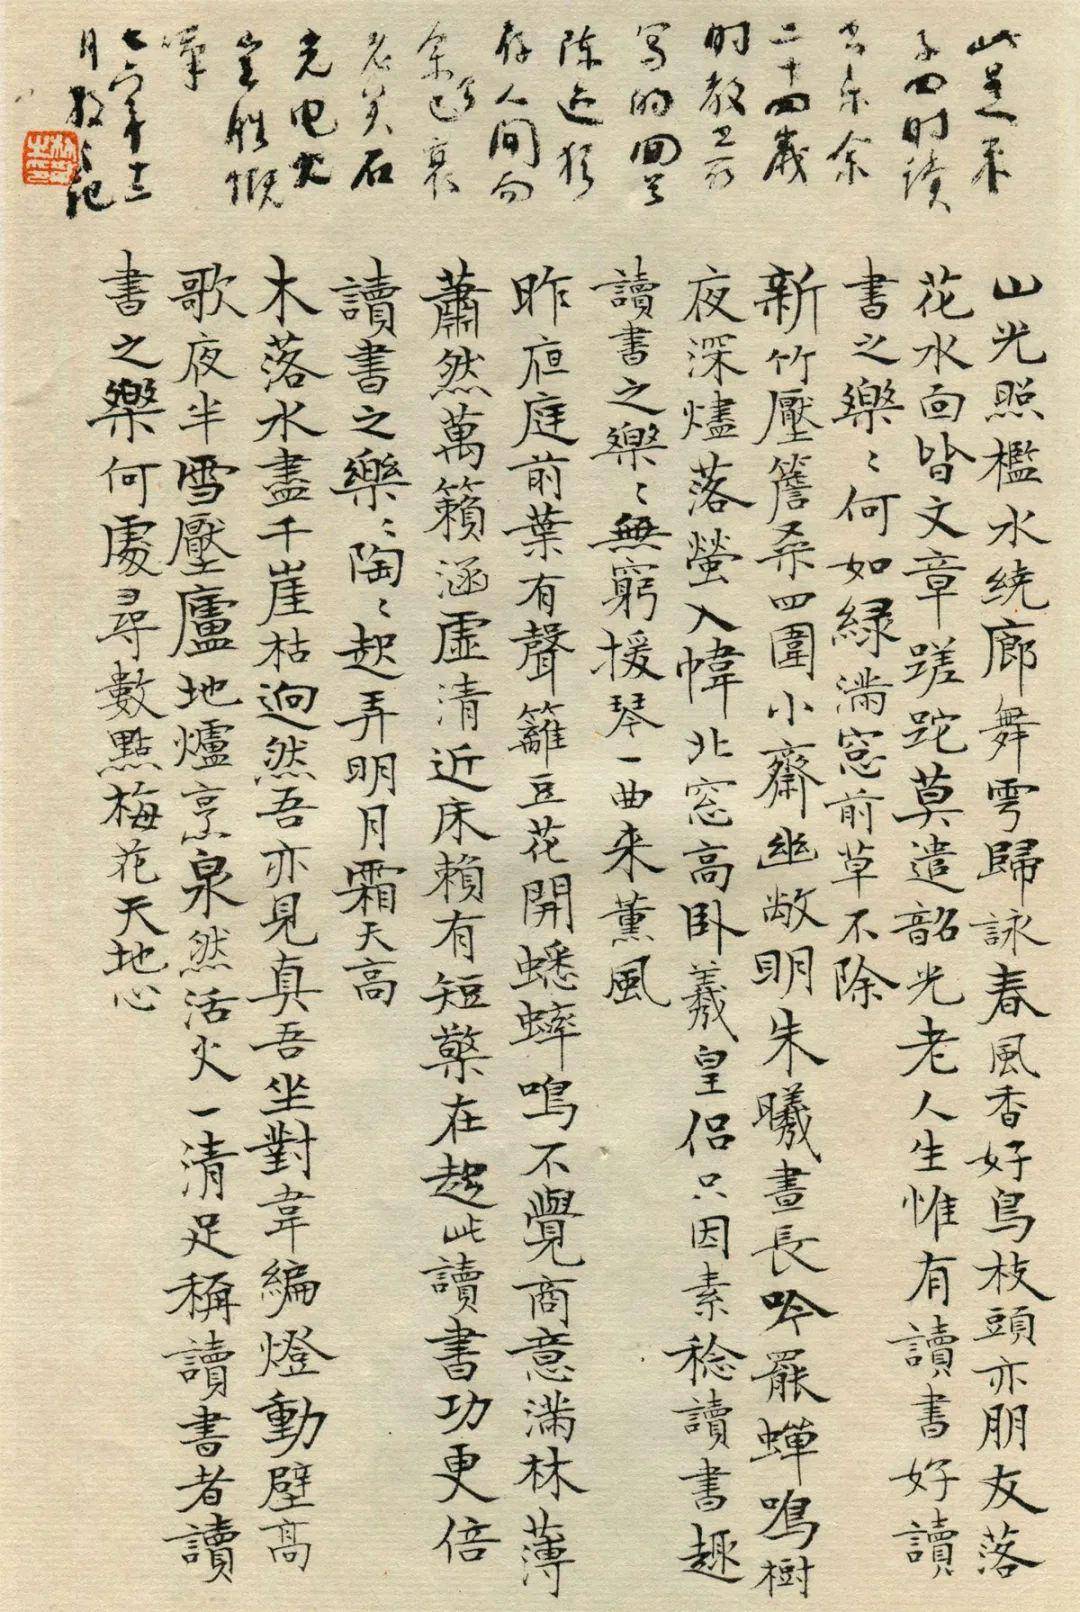 此是朱
子四时读
书乐余
二十四歲
时教
写的回首
陈迹犹
存人间而
余已衰
老矣石
光电火
岂胜慨
嘆
七六年十二
月散之记
山光照檻水繞廊舞雩歸詠春風香好鳥枝頭亦朋友落
花水面皆文章蹉跎莫遣韶光老人生惟有讀書好讀
書之樂〻何如緑滿窓前草不除
新竹壓簷桑四圍小齋幽敞明朱曦晝長吟罷蟬鳴樹
夜深燼落螢入幃北窓高卧羲皇侶只因素稔讀書趣
讀書之樂〻無窮援琴一曲来薰風
昨夜庭前葉有聲籬豆花開蟋蟀鳴不覺商意滿林薄
蕭然萬籟涵虛清近床賴有短檠在趁此讀書功更倍
讀書之樂〻陶〻起弄明月霜天高
木落水盡千崖枯迥然吾亦見真吾坐對韋編燈動壁高
歌夜半雪壓廬地爐烹泉然活火一清足稱讀書者讀
書之樂何處尋數點梅花天地心